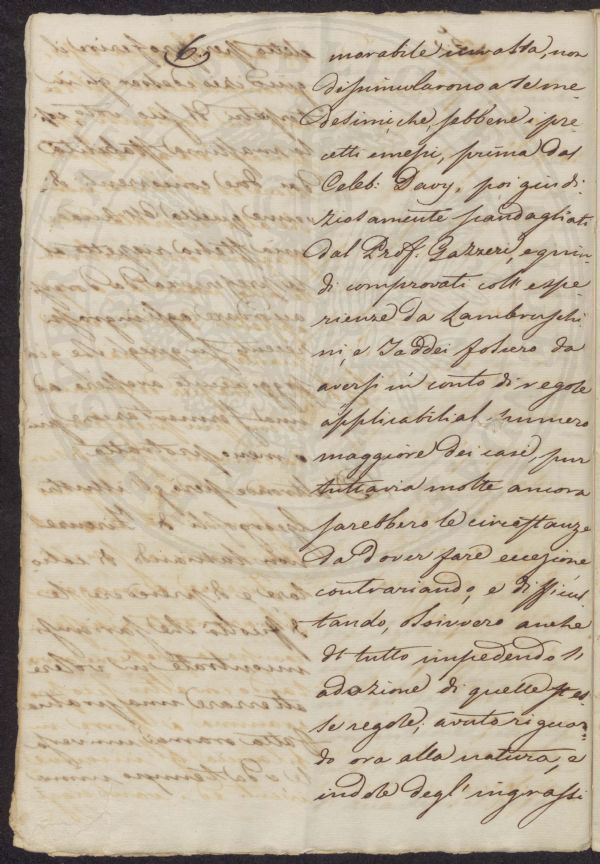 6.
morabile
dissimularono a se me
desimi, che, sebbene i pre
cetti emessi, prima dal
Celeb: Davy, poi giudi
ziosamente scandagliati
dal Prof. Gazzeri, e quin
di comprovati coll' espe
rienze da Lambruschi
ni, e Taddei fossero da
aversi in conto di regole
applicabili al numero
maggiore dei casi, pur
tuttavia molte ancora
sarebbero le circostanze
da dover fare eccezione,
contrariando, e difficul
tando, ossivvero anche
di tutto impedendo l'
adozione di quelle stes
se regole; avuto riguar
do ora alla natura, e
indole degl' ingrassi